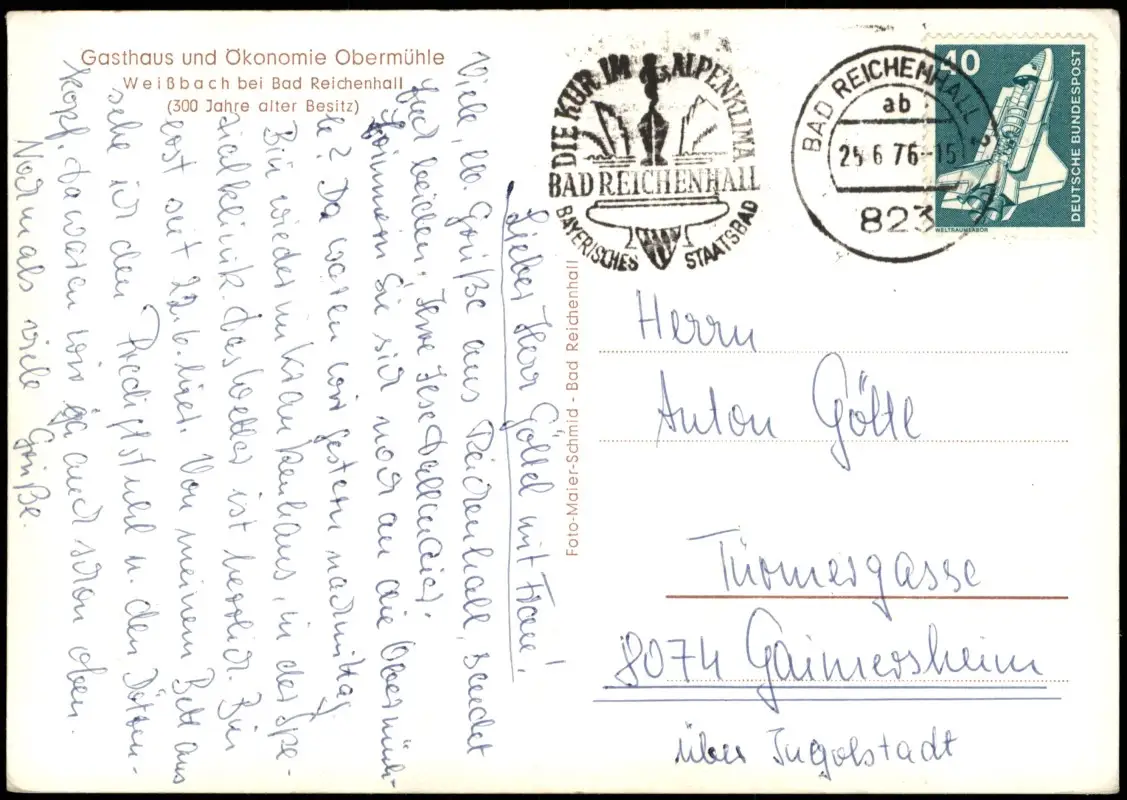 Gasthaus und Ökonomie Obermühle
Weißbach bei Bad Reichenhall
(300 Jahre alter Besitz)
Lieber Herr Göltl mit Frau!
Viele, lb. Grüße aus Reichenhall, sendet
Jnen beiden, Jhre Rese
Können Sie sich noch an die Obermüh-
le? Da waren wir gestern nachmittag.
Bin wieder im Krankenhaus, in der Spe-
zialklinik. Das Wetter ist herrlich. Bin
erst seit 22.6. hier. Von meinem Bett aus
sehe ich den Predigtstuhl u. den Dötzen-
kopf, da waren wir ja auch schon oben.
Nochmals viele Grüße.
Foto-Maier-Schmid - Bad Reichenhall
DIE KUR IM ALPENKLIMA
BAD REICHENHALL
BAYERISCHES STAATSBAD
BAD REICHENHALL
ab
25.6.76-15
823
40
DEUTSCHE BUNDESPOST
WELTRAUMLABOR
Herrn
Anton Göltl
Türmergasse
8074 Gaimersheim
über Ingolstadt